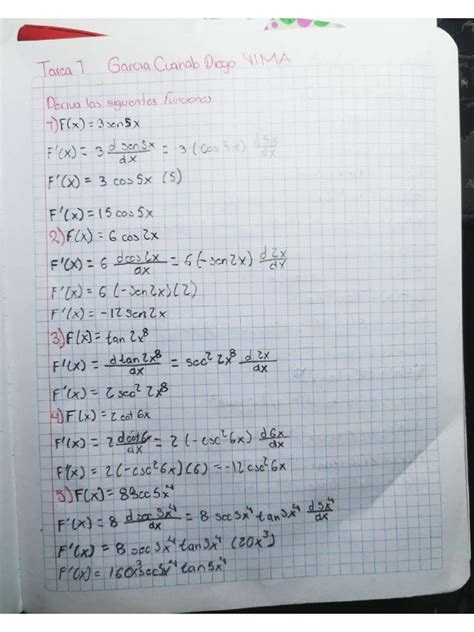 Tarea 7 Garcia Cuando Diego 4IMA
Deriva las siguientes funciones
1) F(x) = 3 sen 5x
F'(x) = 3 d sen 5x/dx = 3 (cos 5x) d5x/dx
F'(x) = 3 cos 5x (5)
F'(x) = 15 cos 5x
2) F(x) = 6 cos 2x
F'(x) = 6 d cos 2x/dx = 6 (-sen 2x) d2x/dx
F'(x) = 6 (-sen 2x)(2)
F'(x) = -12 sen 2x
3) F(x) = tan 2x⁸
F'(x) = d tan 2x⁸/dx = sec² 2x⁸ d2x/dx
F'(x) = 2 sec² 2x⁸
4) F(x) = 2 cot 6x
F'(x) = 2 d cot 6x/dx = 2 (-csc² 6x) d6x/dx
F'(x) = 2 (-csc² 6x)(6) = -12 csc² 6x
5) F(x) = 8 sec 5x⁴
F'(x) = 8 d sec 5x⁴/dx = 8 sec 5x⁴ tan 5x⁴ d5x⁴/dx
F'(x) = 8 sec 5x⁴ tan 5x⁴ (20x³)
F'(x) = 160x³ sec 5x⁴ tan 5x⁴